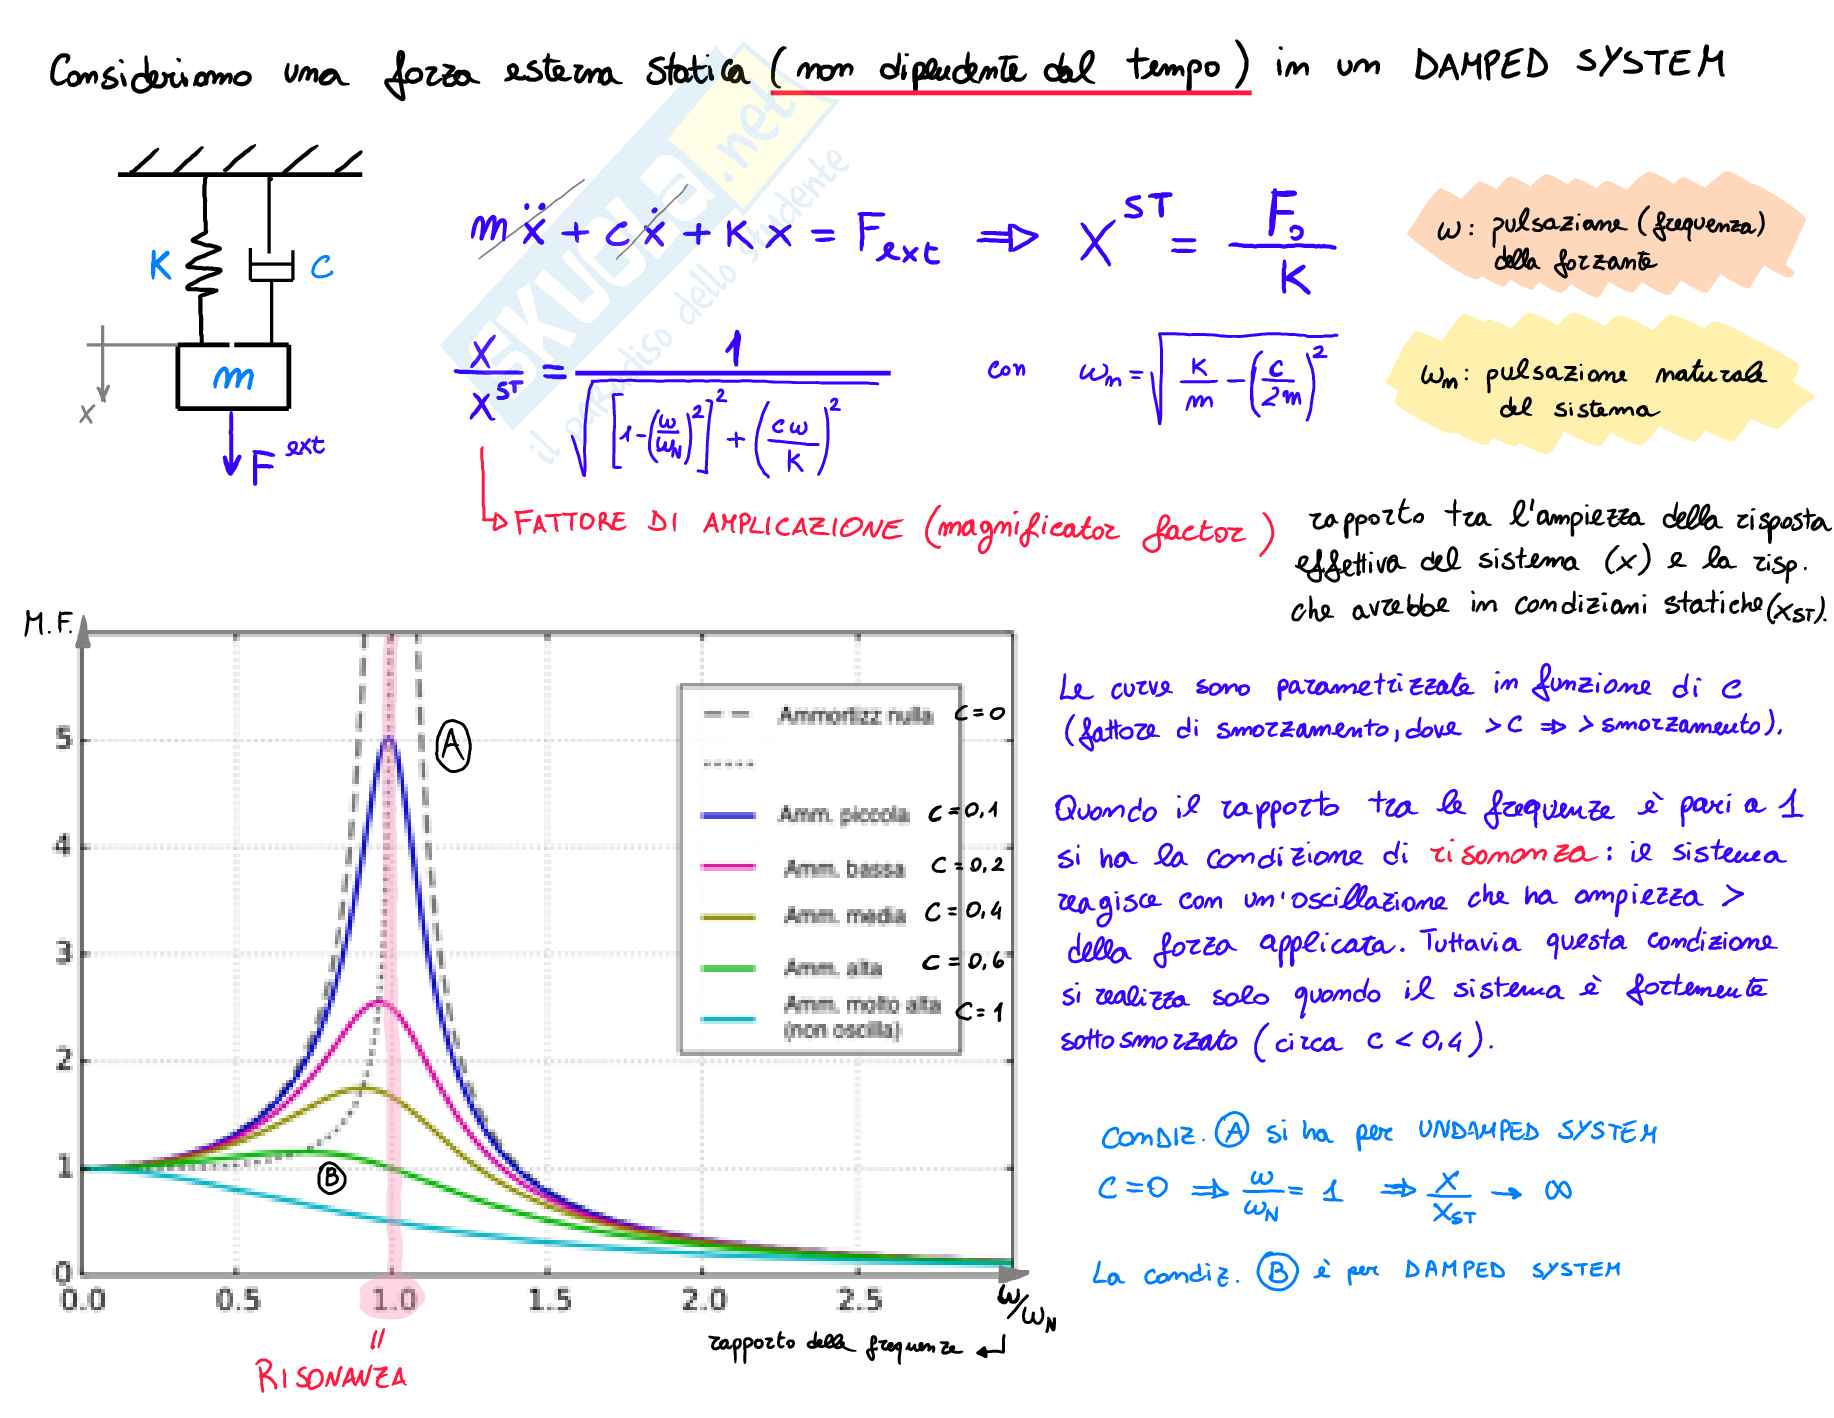 Consideriamo una forza esterna statica (non dipendente dal tempo) in un DAMPED SYSTEM
K
C
m
x
F ext
mẍ + cẋ + Kx = F_ext ⇒ X^ST = F₀/K
ω: pulsazione (frequenza)
della forzante
X/X^ST = 1/√([1-(ω/ω_N)²]² + (cω/K)²)
con ω_n = √(K/m - (c/2m)²)
ω_n: pulsazione naturale
del sistema
SKUOLA.net
il paradiso dello studente
FATTORE DI AMPLICAZIONE (magnificator factor)
rapporto tra l'ampiezza della risposta
effettiva del sistema (x) e la risp.
che avrebbe in condizioni statiche (x_ST).
M.F.
5
4
3
2
1
0
0.0 0.5 1.0 1.5 2.0 2.5
ω/ω_N
A
B
Ammortizz nulla C=0
Amm. piccola C=0,1
Amm. bassa C=0,2
Amm. media C=0,4
Amm. alta C=0,6
Amm. molto alta C=1
(non oscilla)
rapporto delle frequenze
=
RISONANZA
Le curve sono parametrizzate in funzione di C
(fattore di smorzamento, dove >C ⇒ > smorzamento).
Quando il rapporto tra le frequenze è pari a 1
si ha la condizione di risonanza: il sistema
reagisce con un'oscillazione che ha ampiezza >
della forza applicata. Tuttavia questa condizione
si realizza solo quando il sistema è fortemente
sottosmorzato (circa C < 0,4).
CONDIZ. A si ha per UNDAMPED SYSTEM
C=0 ⇒ ω/ω_N = 1 ⇒ X/X_ST → ∞
La condiz. B è per DAMPED SYSTEM